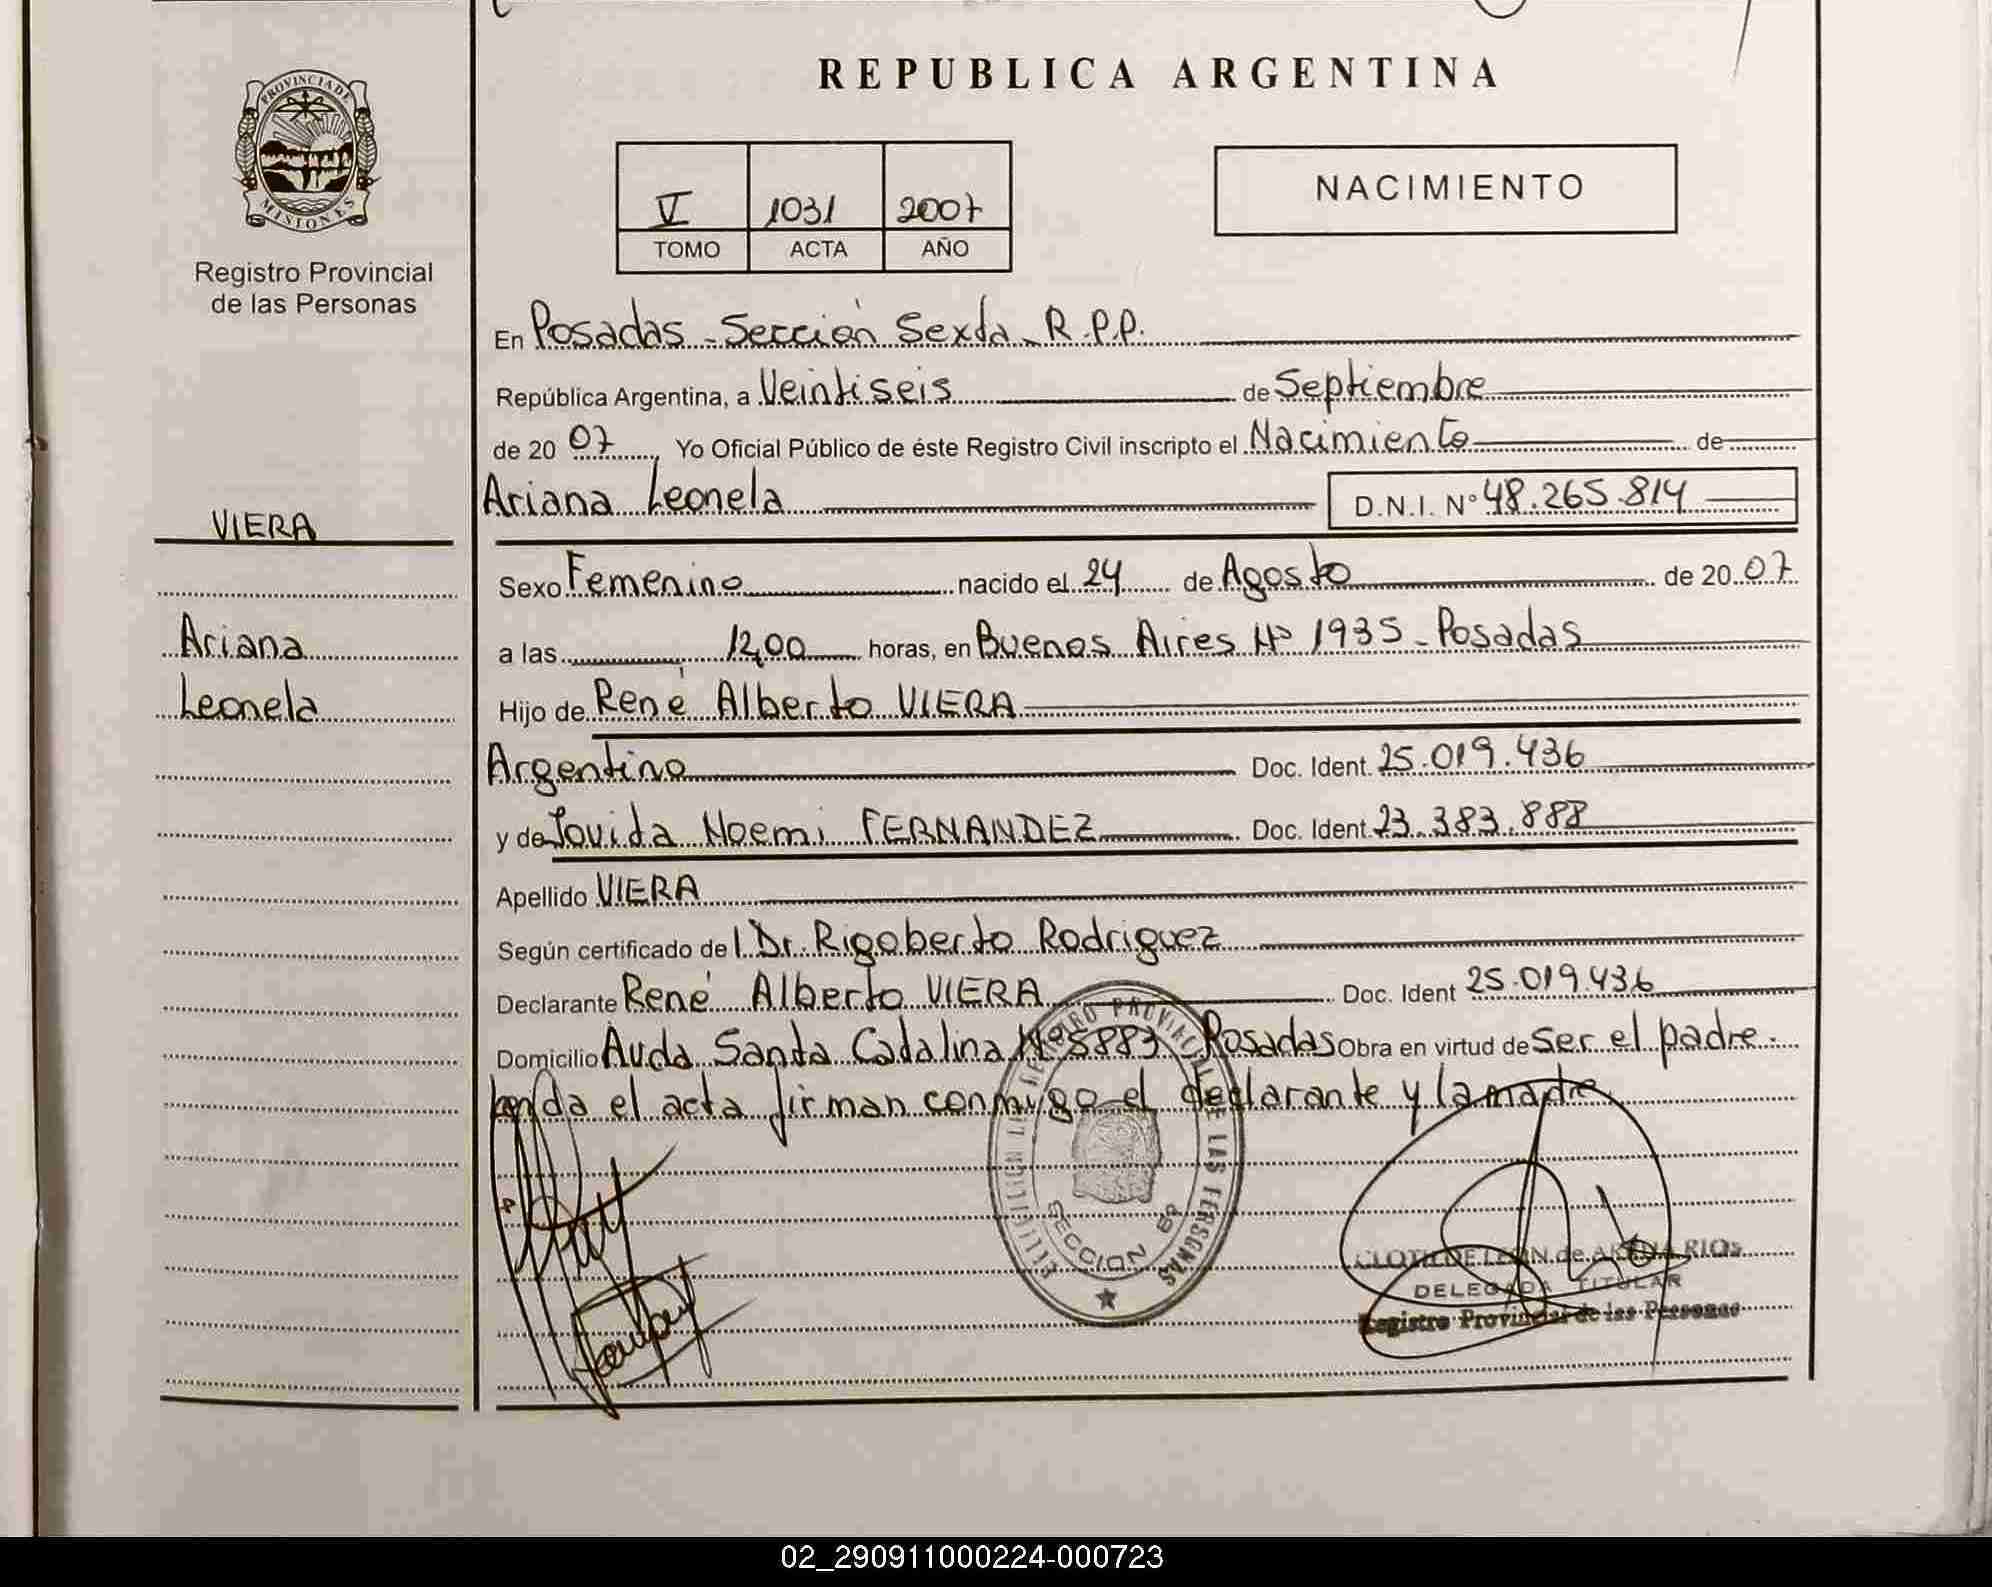 REPUBLICA ARGENTINA
PROVINCIA DE
MISIONES
Registro Provincial
de las Personas
V 1031 2007
TOMO ACTA AÑO
NACIMIENTO
En Posadas - Sección Sexta - R.P.P.
República Argentina, a Veintiseis de Septiembre
de 20 07 Yo Oficial Público de éste Registro Civil inscripto el Nacimiento de
Ariana Leonela D.N.I. Nº 48.265.814
VIERA
Sexo Femenino nacido el 24 de Agosto de 20 07
Ariana
a las 12,00 horas, en Buenos Aires Nº 1935 - Posadas
Leonela
Hijo de René Alberto VIERA
Argentino Doc. Ident. 25.019.436
y de Jovida Noemi FERNANDEZ Doc. Ident. 23.383.888
Apellido VIERA
Según certificado de l Dr. Rigoberto Rodriguez
Declarante René Alberto VIERA Doc. Ident 25.019.436
Domicilio Avda Santa Catalina Nº 5883 - Posadas Obra en virtud de ser el padre.
el acta firman conmigo el declarante y la madre
REGISTRO PROVINCIAL DE LAS PERSONAS
SECCION 6ª
CLOTILDE LEON de RIOS
DELEGADA TITULAR
Registro Provincial de las Personas
02_290911000224-000723